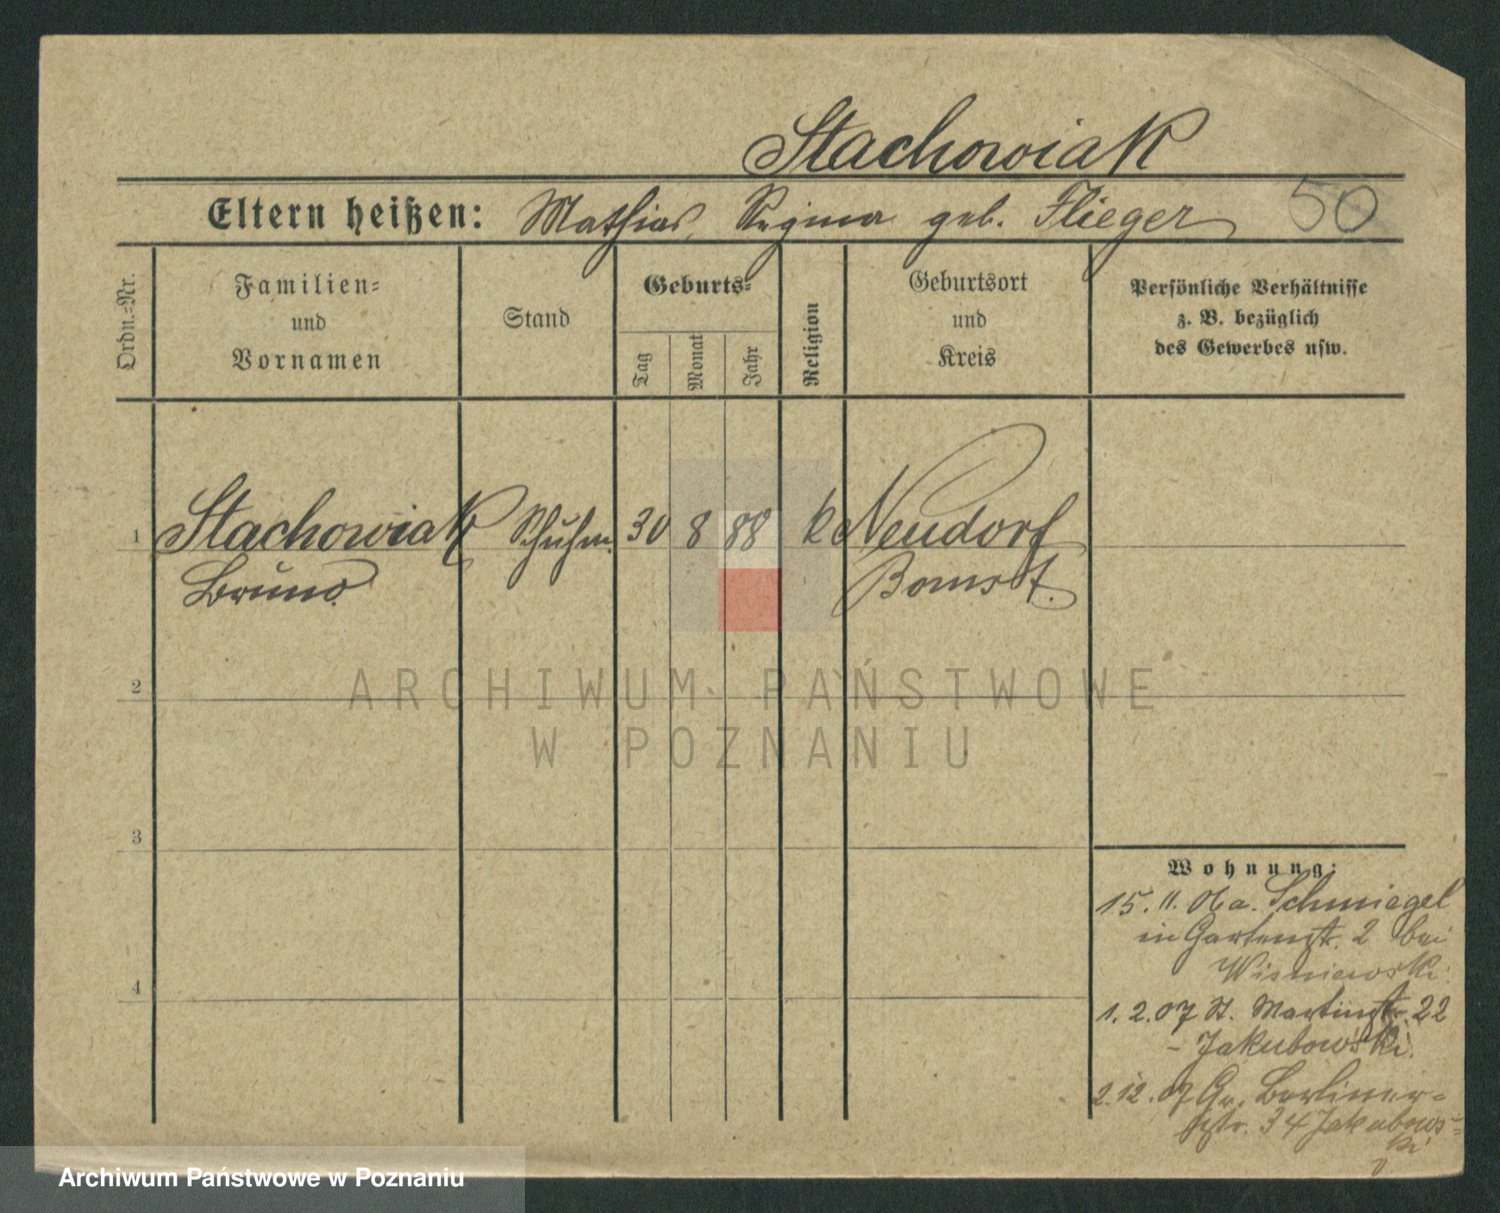 Stachowiak
Eltern heißen: Mathias, Regina geb. Flieger 50
Ordn.=Nr.
Familien=
und
Vornamen
Stand
Geburts=
Tag
Monat
Jahr
Religion
Geburtsort
und
Kreis
Persönliche Verhältnisse
z. B. bezüglich
des Gewerbes usw.
1 Stachowiak Schuhm. 30 8 88 k Neudorf
Bruno Bomst.
2
3
4
Wohnung:
15. 11. 06 a. Schmiegel
in Gartenstr. 2 bei
Wisniewski
1. 2. 07 St. Martinstr. 22
- Jakubowski.
2. 12. 07 Gr. Berliner-
str. 34 Jakubows-
ki
ARCHIWUM PAŃSTWOWE
W POZNANIU
Archiwum Państwowe w Poznaniu